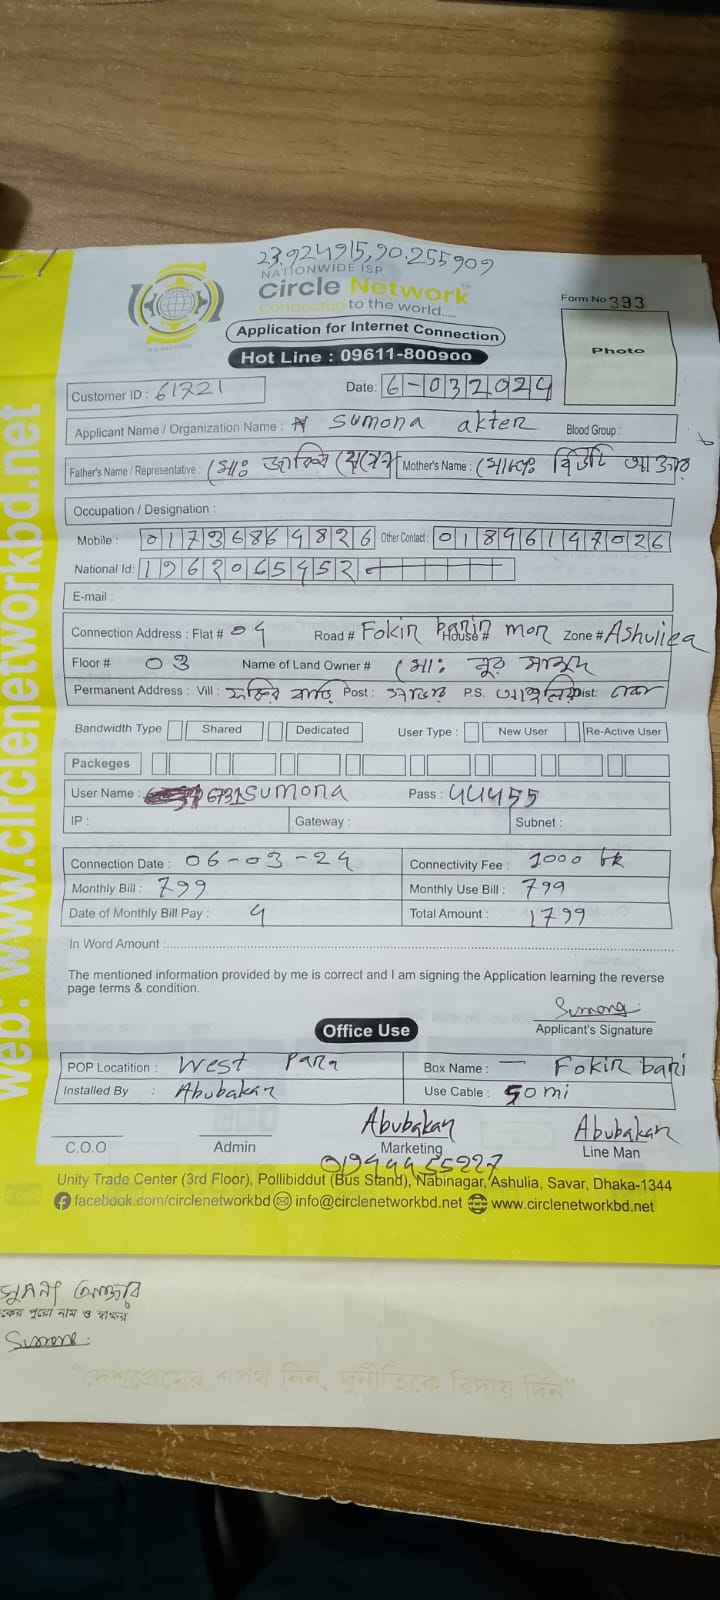 23.924915,90.255909
NATIONWIDE ISP
Circle Network
Connected to the world.....
Form No 393
Application for Internet Connection
Photo
Hot Line : 09611-800900
Customer ID : 61721
Date: 6-032024
Applicant Name / Organization Name : Sumona akter Blood Group :
Father's Name / Representative : মোঃ জাকির Mother's Name : মোছাঃ বিউটি আক্তার
Occupation / Designation :
Mobile : 01736864826 Other Contact : 01896147026
National Id: 1962065452
E-mail :
Connection Address : Flat # 04 Road # Fokir barir mor House # Zone # Ashuliea
Floor # 03 Name of Land Owner # মোঃ নুর
Permanent Address : Vill : ফকির বাড়ি Post : সাভার P.S. আশুলিয়া Dist: ঢাকা
Bandwidth Type Shared Dedicated User Type : New User Re-Active User
Packeges
User Name : 6731sumona Pass : 44455
IP : Gateway : Subnet :
Connection Date : 06-03-24 Connectivity Fee : 1000 tk
Monthly Bill : 799 Monthly Use Bill : 799
Date of Monthly Bill Pay : 4 Total Amount : 1799
In Word Amount :
The mentioned information provided by me is correct and I am signing the Application learning the reverse
page terms & condition.
Sumona
Applicant's Signature
Office Use
POP Locatition : West para Box Name : — Fokir bari
Installed By : Abubakar Use Cable : 50 mi
Abubakar Abubakar
C.O.O Admin Marketing Line Man
01944455227
Unity Trade Center (3rd Floor), Pollibiddut (Bus Stand), Nabinagar, Ashulia, Savar, Dhaka-1344
facebook.com/circlenetworkbd info@circlenetworkbd.net www.circlenetworkbd.net
web: www.circlenetworkbd.net
সুমনা আক্তার
কের পুরো নাম ও স্বাক্ষর
Sumona
"দেশপ্রেমের শপথ নিন, দুর্নীতিকে বিদায় দিন"